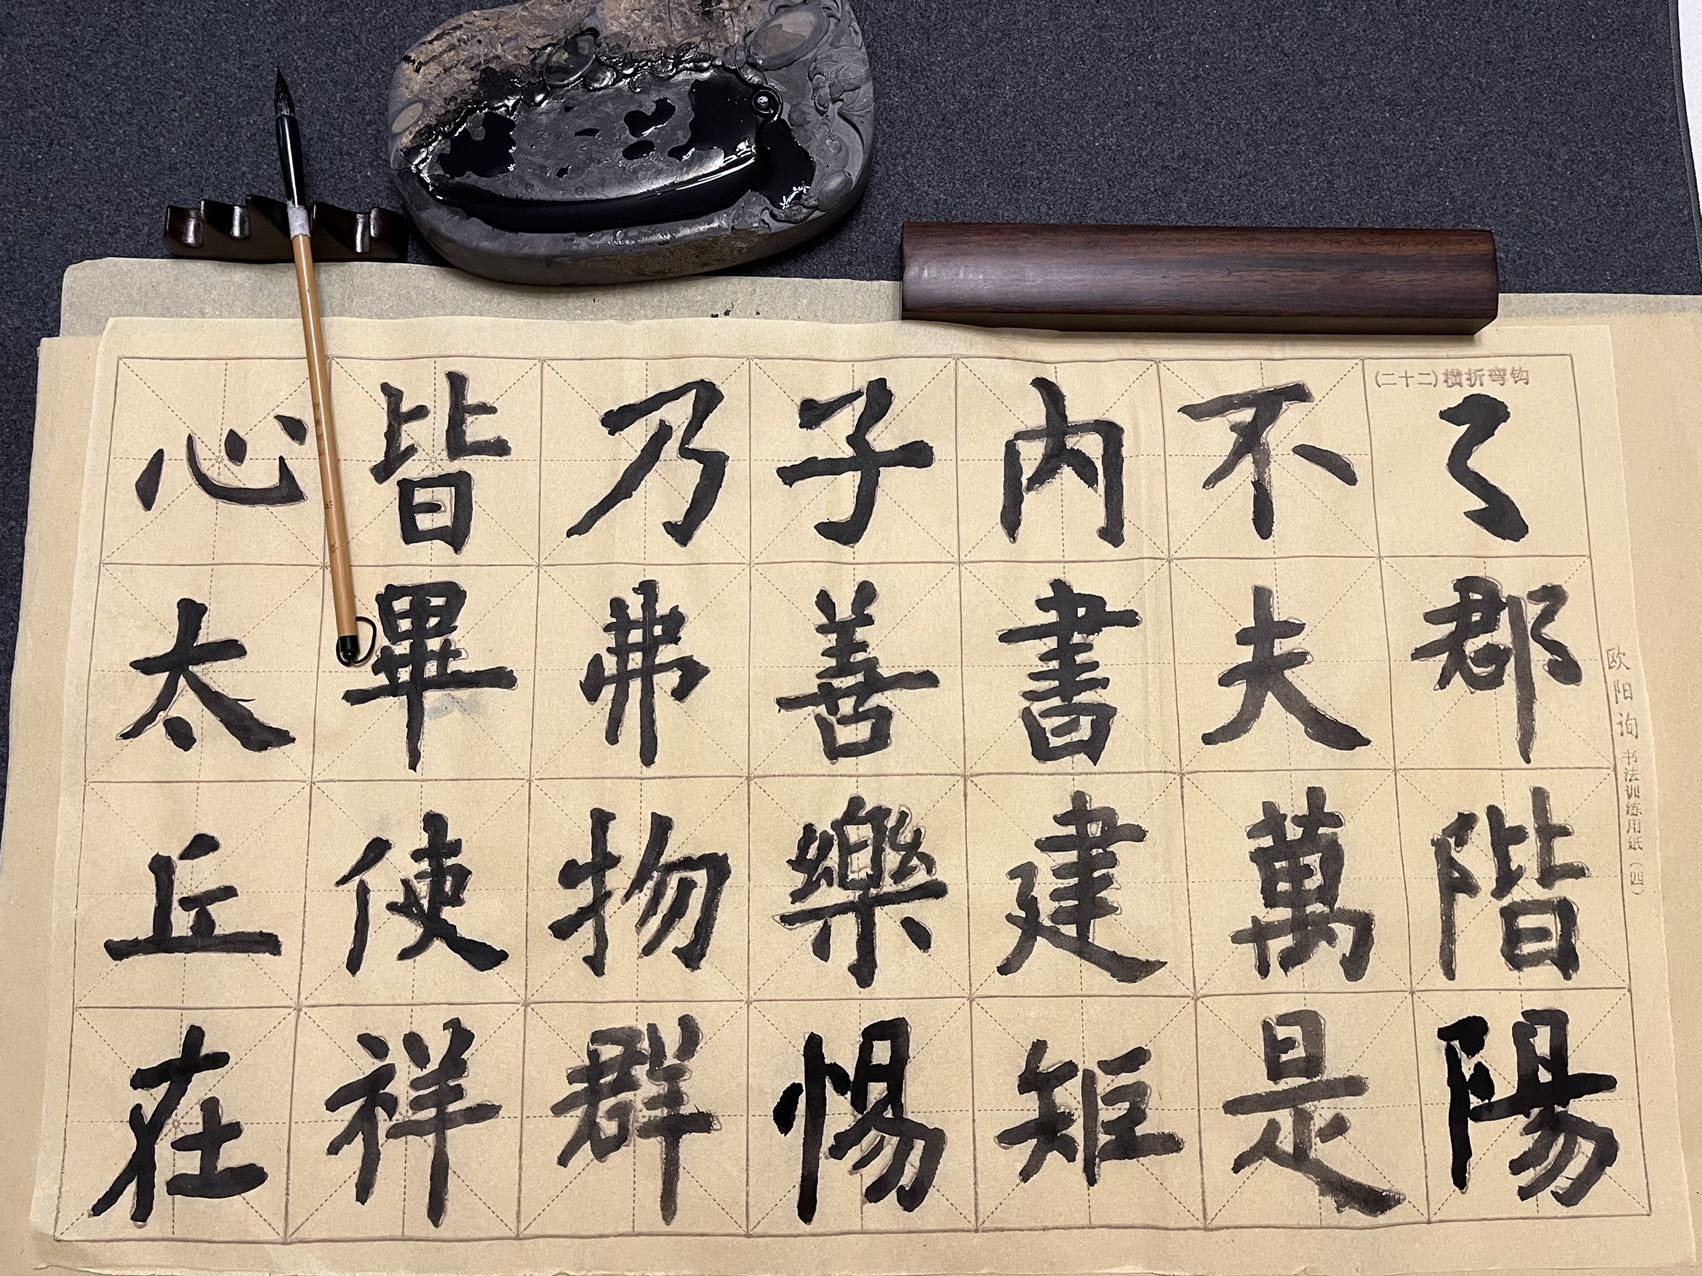 欧阳询书法训练用纸（四）
（二十二）横折弯钩
郡階陽
不夫萬是
内書建矩
子善樂惕
乃弗物群
皆畢使祥
心太丘在